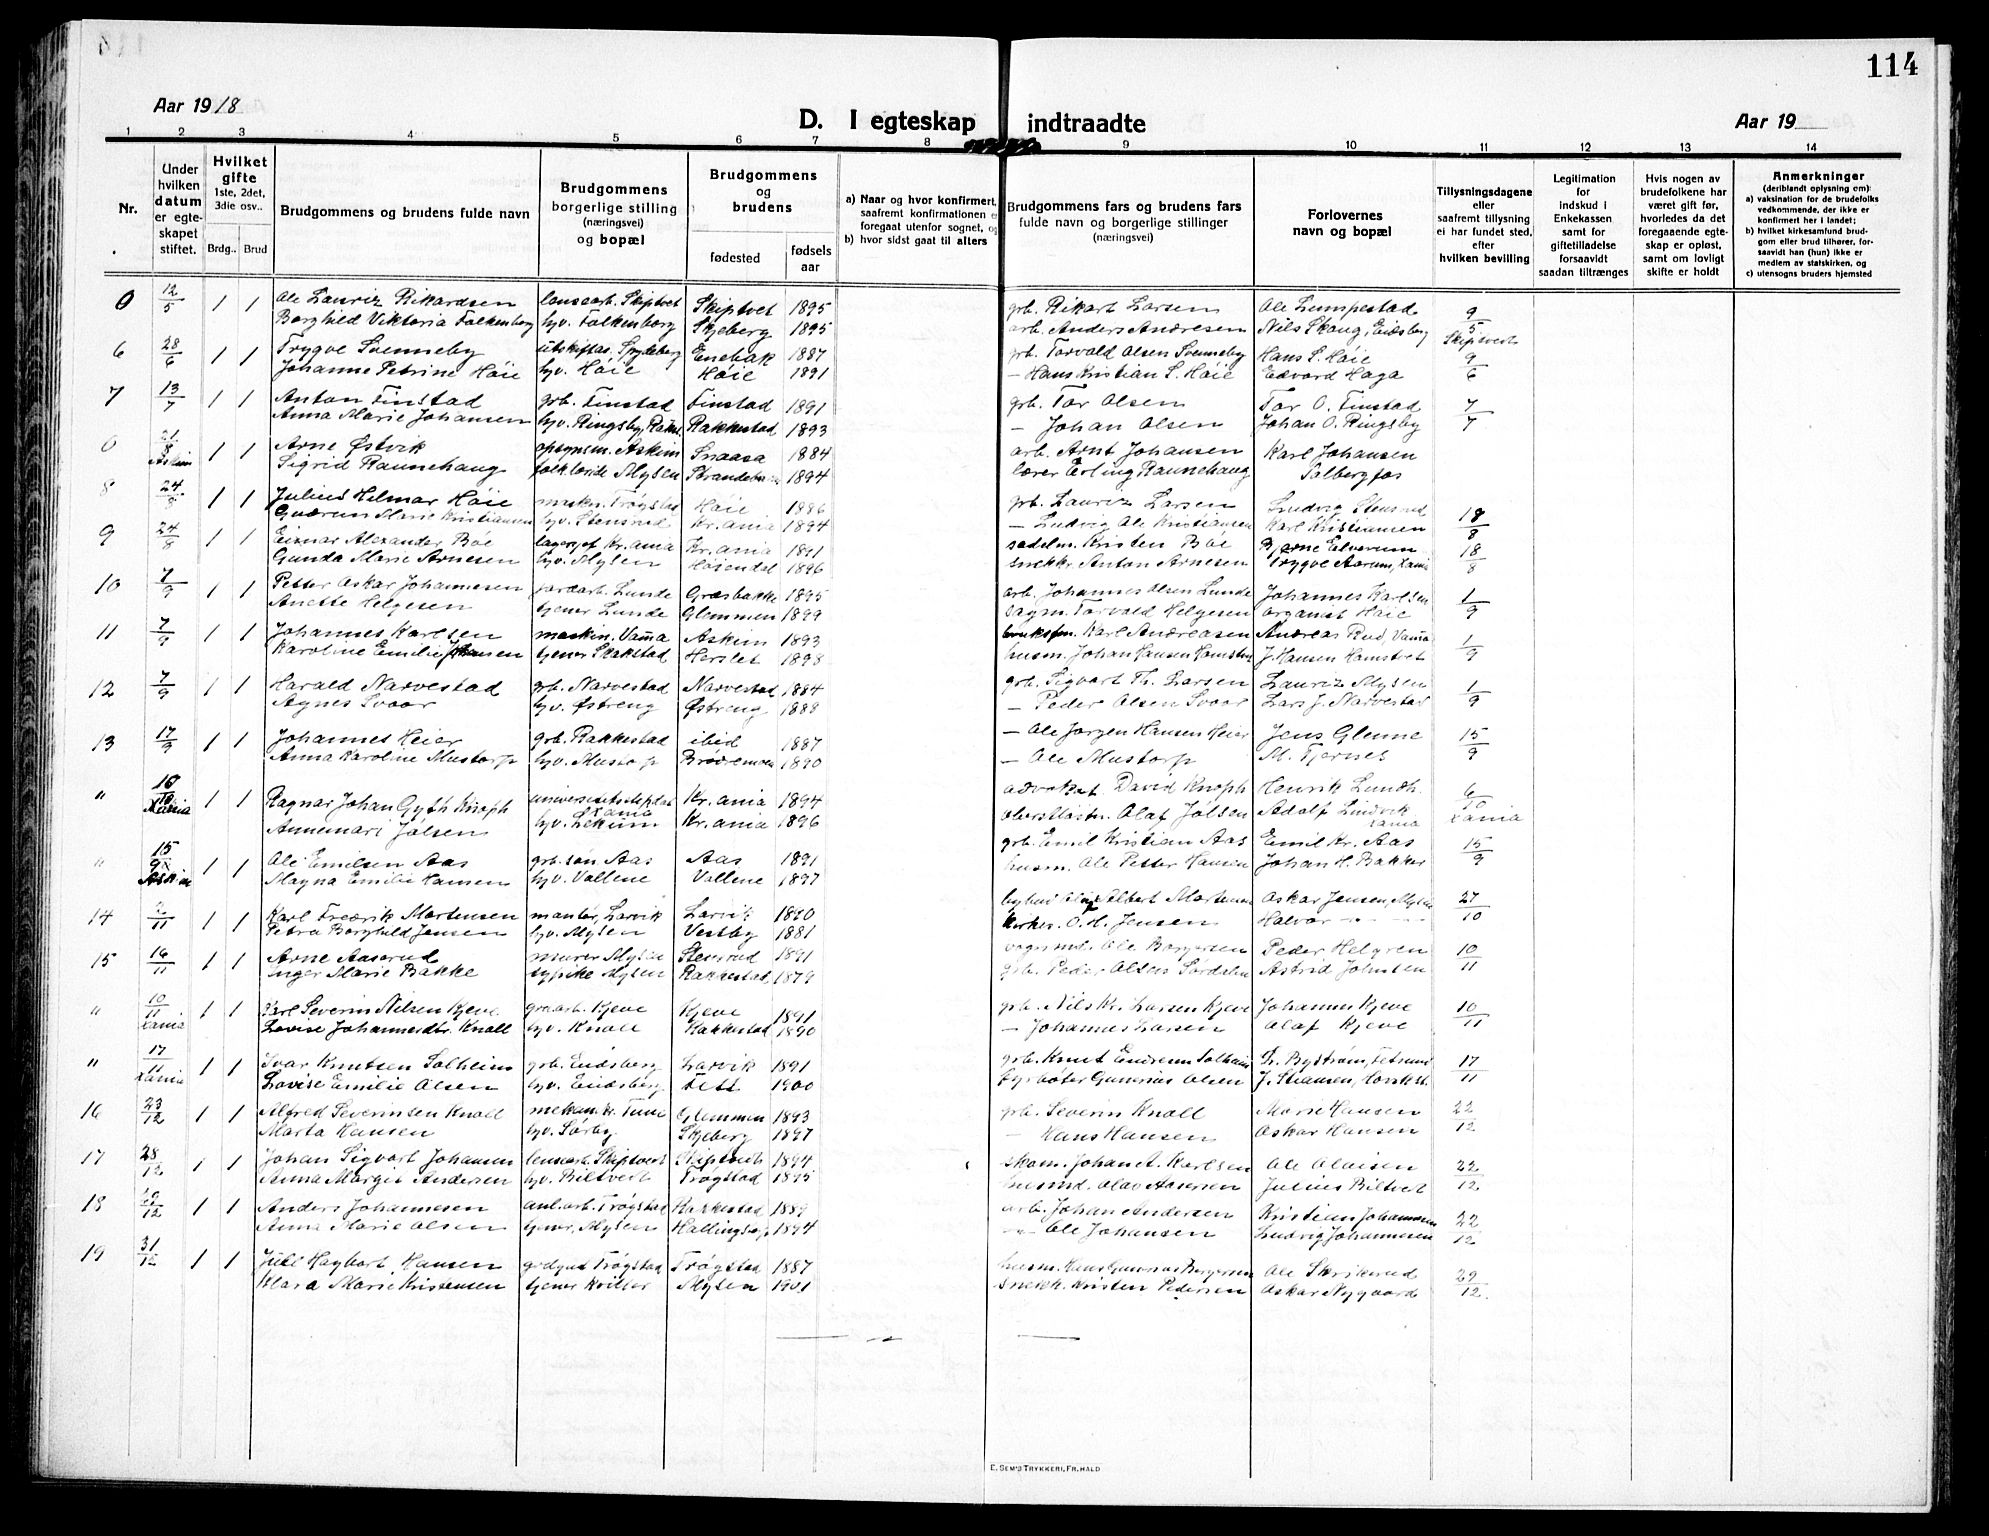 114
Aar 1918
D. I egteskap indtraadte
Aar 19
1 2 3 4 5 6 7 8 9 10 11 12 13 14
Nr.
Under hvilken datum er egteskapet stiftet.
Hvilket gifte
1ste, 2det, 3die osv..
Brdg.. Brud
Brudgommens og brudens fulde navn
Brudgommens borgerlige stilling (næringsvei) og bopæl
Brudgommens og brudens
fødested
fødsels aar
a) Naar og hvor konfirmert, saafremt konfirmationen er foregaat utenfor sognet, og
b) hvor sidst gaat til alters
Brudgommens fars og brudens fars fulde navn og borgerlige stillinger (næringsvei)
Forlovernes navn og bopæl
Tillysningsdagene eller saafremt tillysning ei har fundet sted, efter hvilken bevilling
Legitimation for indskud i Enkekassen samt for giftetilladelse forsaavidt saadan tiltrænges
Hvis nogen av brudefolkene har været gift før, hvorledes da det foregaaende egteskap er opløst, samt om lovligt skifte er holdt
Anmerkninger
(deriblandt oplysning om):
a) vaksination for de brudefolks vedkommende, der ikke er konfirmert her i landet;
b) hvilket kirkesamfund brudgom eller brud tilhører, forsaavidt han (hun) ikke er medlem av statskirken, og
c) utensogns bruders hjemsted
0 12/5 1 1 Ole Lauriz Rikardsen lensearb. Skiptvet Skiptvet 1895 grb. Rikart Larsen Ole Lumpestad 9/5 Skiptvet
Borghild Viktoria Falkenborg hjv. Falkenborg Skjeberg 1895 arb. Anders Andresen Nils Skaug, Eidsberg
6 28/6 1 1 Trygve Svenneby Spydeberg Enebak 1887 grb. Torvald Olsen Svenneby Hans S. Høie 9/6
Johanne Petrine Høie hjv. Høie Høie 1891 – Hans Kristian S. Høie Edvard Haga
7 13/7 1 1 Anton Finstad grb. Finstad Finstad 1891 grb. Tor Olsen Tor O. Finstad 7/7
Anna Marie Johansen hjv. Ringsby, Rakk. Rakkestad 1893 – Johan Olsen Johan O. Ringsby
0 21/8 Askim 1 1 Arne Østvik opsynsm. Askim Snaasa 1884 arb. Arnt Johansen Karl Johansen
Sigrid Raunehaug Mysen 1894 lærer Erling Raunehaug Solbergfos
8 24/8 1 1 Julius Hilmar Høie mekn. Trøgstad Høie 1886 grb. Lauriz Larsen Ludvig Stensrud 18/8
Marie Kristiansen hjv. Stensrud Kr.ania 1894 – Ludvig Ole Kristiansen Karl Kristiansen
9 24/8 1 1 Einar Alexander Bøe Kr.ania Kr.ania 1891 sadelm. Kristen Bøe Bjarne Elverum 18/8
Gunda Marie Arnesen hjv. Mysen 1896 snekkr. Anton Arnesen Trygve Aarum, Xania
10 7/9 1 1 Petter Oskar Johannesen jordarb. Lunde Græsbakke 1895 arb. Johannes Olsen Lunde Johannes Karlsen 1/9
Anette Helgesen tjener Lunde Glemmen 1899 sagm. Torvald Helgesen organist Høie
11 7/9 1 1 Johannes Karlsen maskin. Vamma Askim 1893 Karl Andreasen Andreas Rud, Vamma 1/9
Karoline Emilie Hansen tjener Skakstad Herslet 1898 husm. Johan Hansen J. Hansen Hamstvet
12 7/9 1 1 Harald Narvestad grb. Narvestad Narvestad 1884 grb. Sigvart Th. Larsen Lauriz Mysen 1/9
Agnes Svaar hjv. Østreng Østreng 1888 – Peder Olsen Svaar Lars J. Narvestad
13 17/9 1 1 Johannes Heier grb. Rakkestad ibid 1887 – Ole Jørgen Hansen Heier Jens Glenne 15/9
Anna Karoline Mustorp hjv. Mustorp 1890 – Ole Mustorp M. Tjernes
" 18/10 Xania 1 1 Ragnar Johan Gyth Knoph Xania Kr.ania 1894 advokat David Knoph Henrik Lundh. 6/10 Xania
Annemari Jølsen hjv. Lekum Kr.ania 1896 Olaf Jølsen Adolf Lindvik Xania
" 15/9 Askim 1 1 Ole Emilsen Aas grb. søn Aas Aas 1891 grb. Emil Kristian Aas Emil Kr. Aas 15/9
Magna Emilie Hansen hjv. Vallene Vallene 1897 husm. Ole Petter Hansen Johan H. Bakker
14 2/11 1 1 Karl Fredrik Mortensen montør, Larvik Larvik 1890 Albert Mortensen Oskar Jensen, Mysen 27/10
Petra Borghild Jensen hjv. Mysen Vestby 1881 kirkes. O. H. Jensen Halvor – –
15 16/11 1 1 Arne Aaserud murer Mysen 1891 Ole Borgersen Peder Helgren 10/11
Inger Marie Bakke sypike Mysen Rakkestad 1879 grb. Peder Olsen Astrid Johnsen
" 10/11 Xania 1 1 Karl Severin Nilsen Kjeve Kjeve Kjeve 1891 grb. Nils Kr. Larsen Kjeve Johannes Kjeve 10/11
Lovise Johannesdtr. Knoll hjv. Knoll Rakkestad 1890 – Johannes Larsen Olaf Kjeve
" 17/11 Xania 1 1 Ivar Knutsen Solheim grb. Eidsberg Larvik 1891 grb. Knut Solheim 17/11
Lovise Emilie Olsen hjv. Eidsberg 1900 fyrbøter Gunerius Olsen
16 23/12 1 1 Alfred Severinsen Knoll mekan. Tune Glemmen 1893 grb. Severin Knoll Marie Hansen 22/12
Marta Hansen hjv. Sørby Skjeberg 1897 – Hans Hansen Oskar Hansen
17 28/12 1 1 Johan Sigvart Johansen lensearb. Skiptvet Skiptvedt 1894 skom. Johan A. Karlsen Ole Olaisen 22/12
Anna Margit Andersen hjv. Biltvet Trøgstad 1895 Olav Julius Biltvet
18 29/12 1 1 Anders Johannesen anl.arb. Trøgstad Rakkestad 1889 arb. Johan Andersen Kristian Johannesen 22/12
Anna Marie Olsen tjener, Mysen 1894 – Ole Johansen Ludvig Johannesen
19 31/12 1 1 Juel Hagbart Hansen Trøgstad Trøgstad 1887 husm. Hans Ole Skrikerud 29/12
Klara Marie Kristensen tjener Mysen 1901 snekk. Kristen Pedersen Oskar Nygaard
E. SEM'S TRYKKERI, FR.HALD